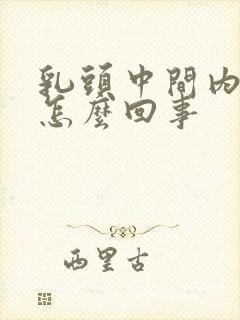 乳頭中間內
怎麼回事
西里古